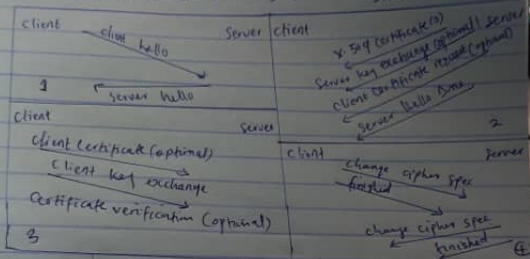 client Server
client hello
1
server hello
client Server
x.509 certificate(s)
Server key exchange (optional)
client certificate request (optional)
server hello done
2
client Server
client certificate (optional)
client key exchange
Certificate verification (optional)
3
client Server
change cipher spec
finished
change cipher spec
finished
4